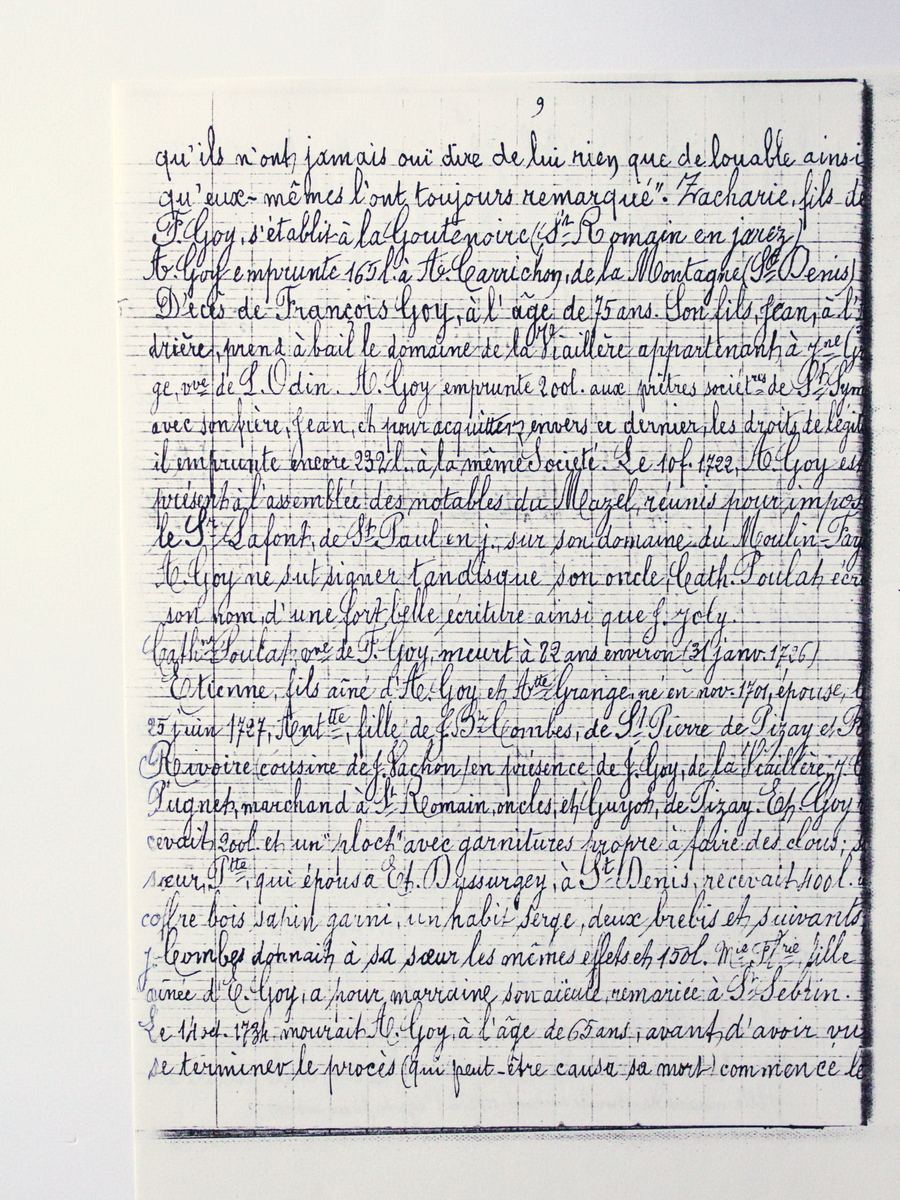 9
qu'ils n'ont jamais ouï dire de lui rien que de louable ainsi
qu'eux-mêmes l'ont toujours remarqué". Zacharie, fils de
F. Goy, s'établit à la Goutenoire (St Romain en jarez)
A. Goy emprunte 165l. à A. Carrichon, de la Montagne (St Denis)
Décès de François Goy, à l'âge de 75 ans. Son fils, Jean, à l'
drière, prend à bail le domaine de la Viaillère appartenant à
ge, vve de L. Odin. A. Goy emprunte 200l. aux prêtres sociétres de St Sym
avec son frère, Jean, et pour acquitter envers ce dernier, les droits de légit
il emprunte encore 232l. à la même Société. Le 10 f. 1722, A. Goy est
présent à l'assemblée des notables du Mazel, réunis pour impos
le Sr Lafont, de St Paul en j., sur son domaine du Moulin-Fay
A. Goy ne sut signer tandisque son oncle Cath. Poulat écri
son nom d'une fort belle écriture ainsi que J. Joly.
Cathne Poulat, vve de F. Goy, meurt à 82 ans environ (31 janv. 1726)
Etienne, fils aîné d'A. Goy et Atte Grange, né en nov. 1701, épouse, l
25 juin 1727, Anttte, fille de J. Bte Combes, de St Pierre de Pizay et
Rivoire (cousine de J. Vachon) en présence de J. Goy, de la Viaillère,
Pugnet, marchand à St Romain, oncles, et Guyot, de Pizay. Et. Goy
cevait 200l. et un "ploct" avec garnitures propre à faire des clous; s
sœur, Ptte, qui épousa Et. Dussurgey, à St Denis, recevait 400l.
coffre bois sapin garni, un habit serge, deux brebis et suivants
J. Combes donnait à sa sœur les mêmes effets et 150l. Mie Flrie, fille
aînée d'E. Goy, a pour marraine son aïeule, remariée à Sr Sebrin.
Le 14 1734 mourait A. Goy, à l'âge de 65 ans, avant d'avoir vu
se terminer le procès (qui peut-être causa sa mort) commencé le